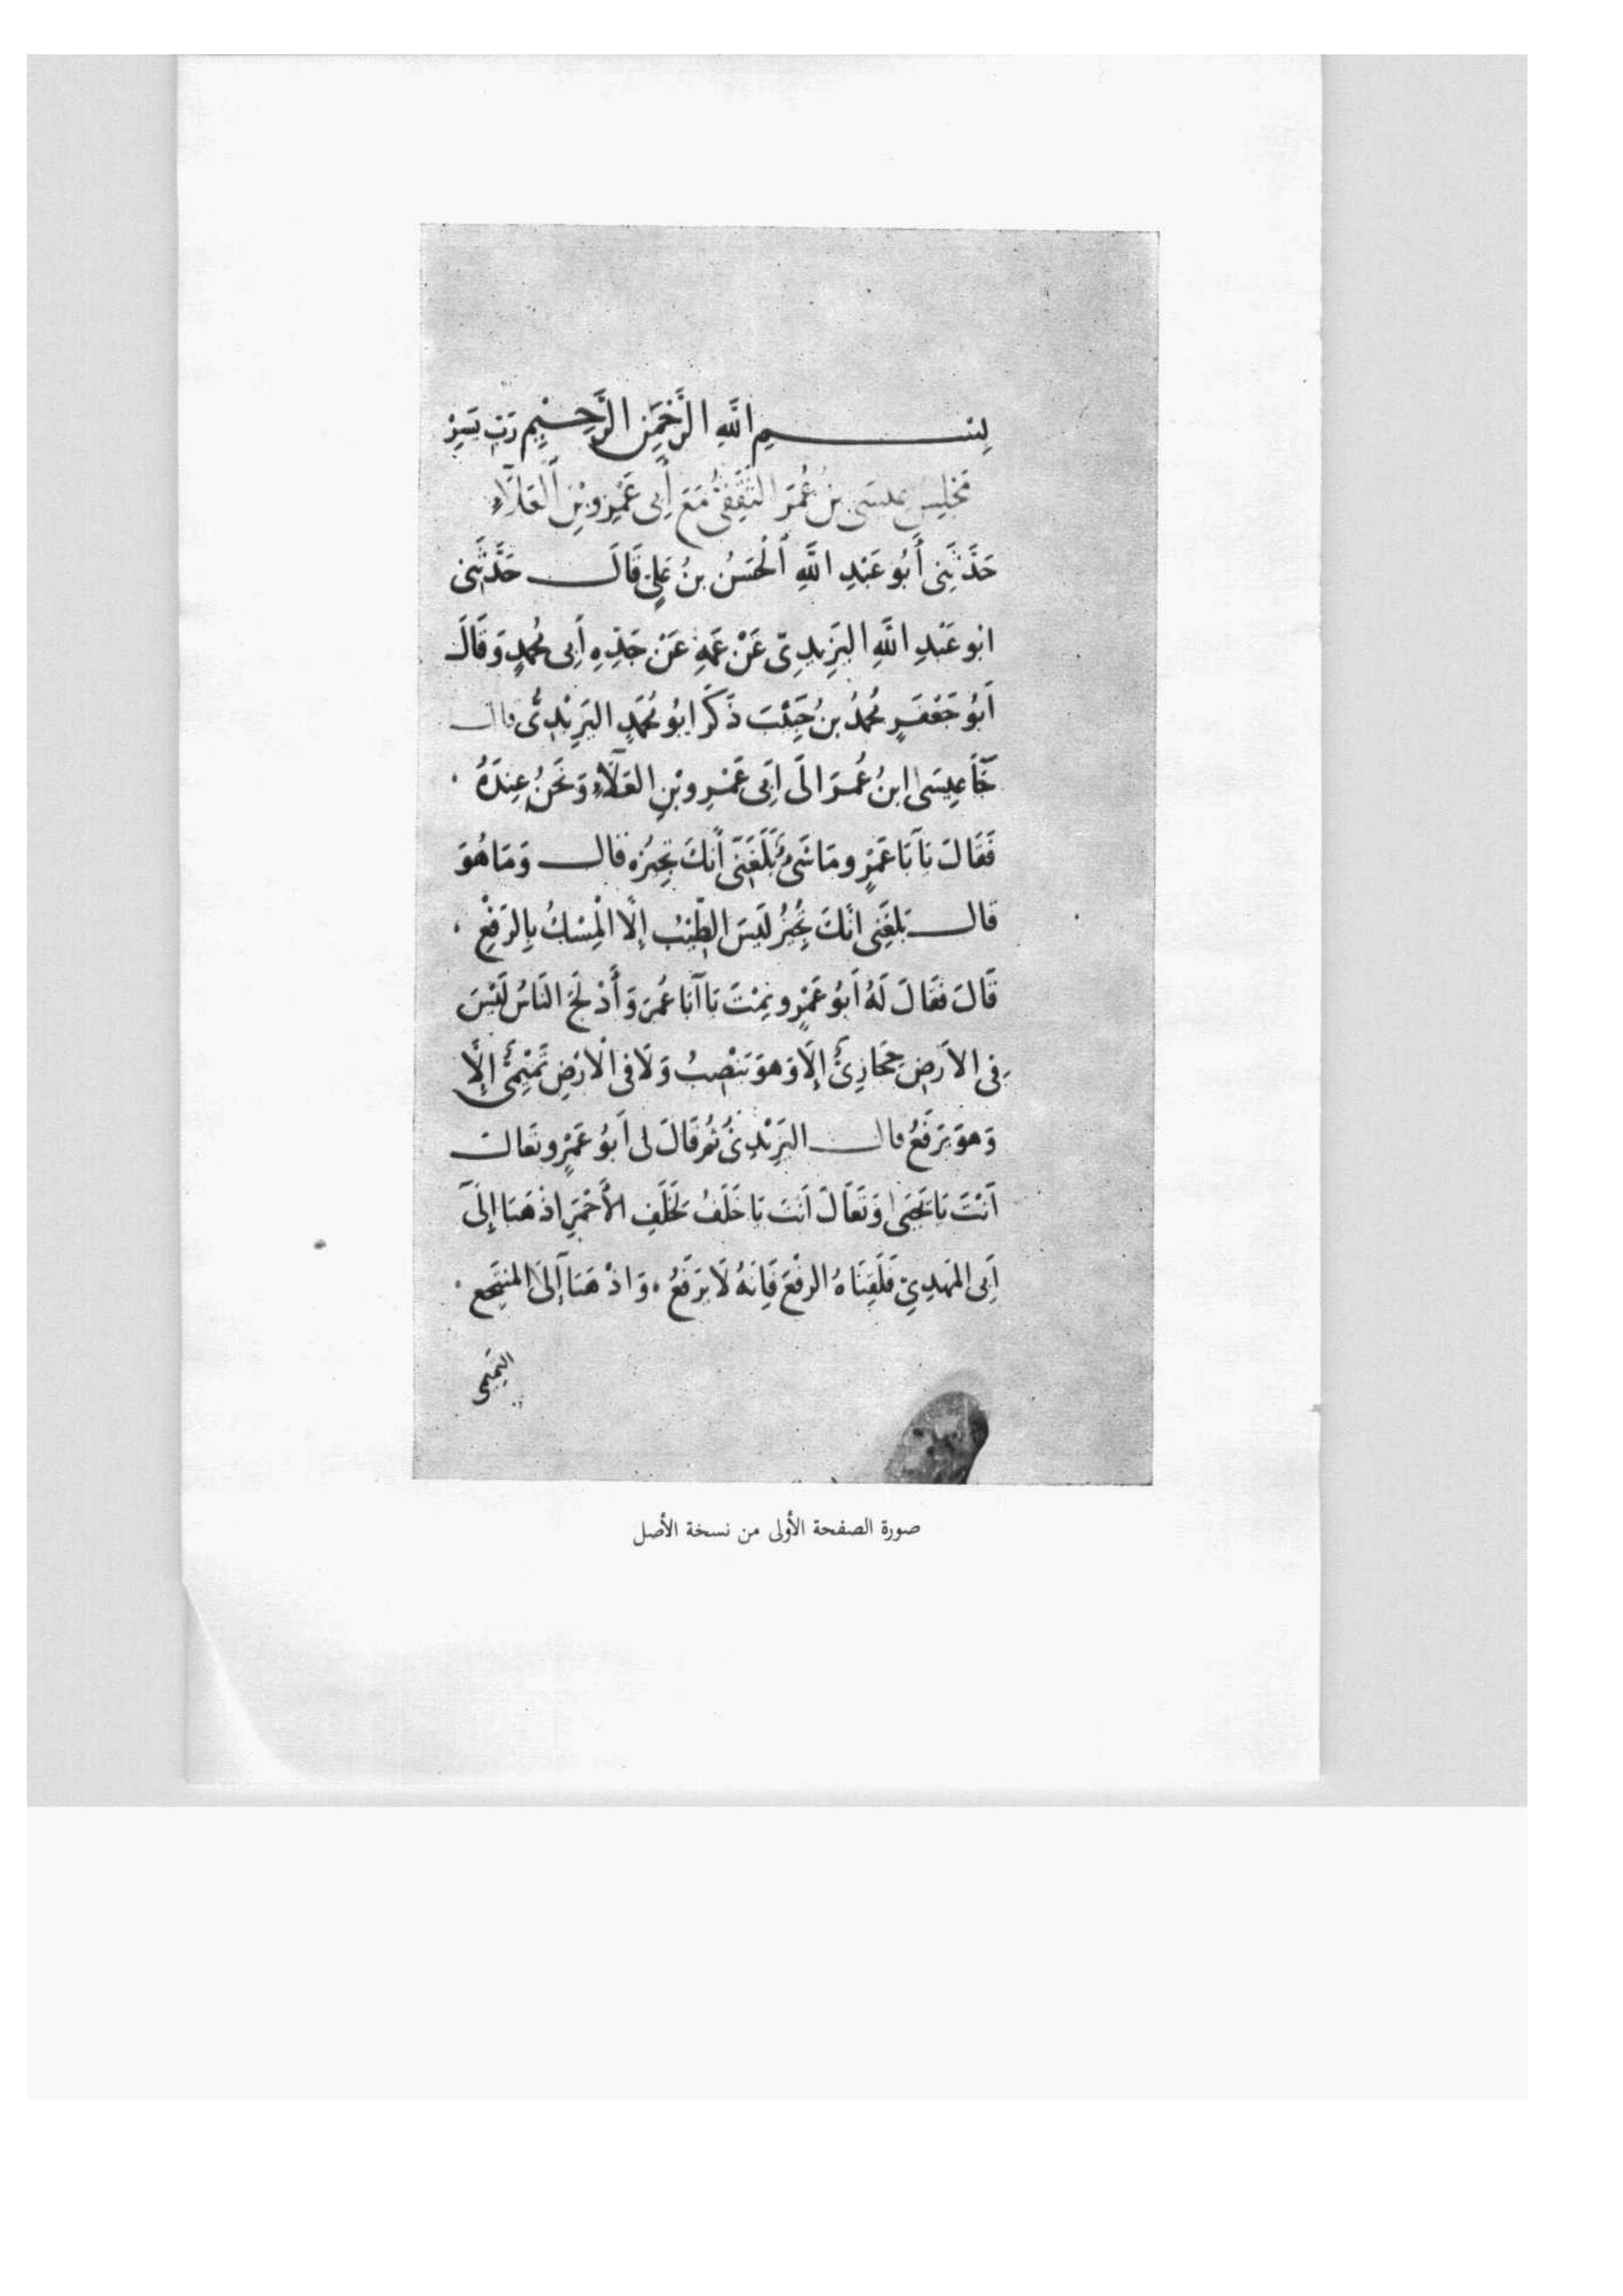 بِسْمِ اللَّهِ الرَّحْمَنِ الرَّحِيمِ رَبِّ يَسِّرْ
مَجْلِسُ عِيسَى بنِ عُمَرَ الثَّقَفِيِّ مَعَ أَبِي عَمْرِو بْنِ الْعَلَآءِ
حَدَّثَنِي أَبُو عَبْدِ اللَّهِ الْحَسَنُ بنُ عَلِيٍّ قَالَ حَدَّثَنِي
ابو عَبْدِ اللَّهِ اليَزِيدِيّ عَنْ عَمِّهِ عَنْ جَدِّهِ أَبِي مُحَمَّدٍ وَقَالَ
أَبُو جَعْفَرٍ مُحَمَّدُ بنُ حَبِيْبَ ذَكَرَ ابُو مُحَمَّدٍ اليَزِيْدِيُّ قال
جَآءَ عِيسَى ابنُ عُمَرَ الَى أَبِي عَمْرِو بْنِ العَلَآءِ وَنَحْنُ عِندَهُ
فَقَالَ يَآ أَبَا عَمْرٍو مَا شَيْءٌ بَلَغَنِي أَنَّكَ تُجِيزُه قال وَمَا هُوَ
قال بَلَغَنِي انَّكَ تُجِيزُ لَيسَ الطِّيْبُ إِلَّا الْمِسْكُ بِالرَّفْعِ
قَالَ فَقَالَ لَهُ أَبُو عَمْرٍو نِمْتَ يَا أَبَا عُمَرَ وَأَدْلَجَ النَّاسُ لَيْسَ
فِي الأَرْضِ حِجَازِيٌّ إِلَّا وَهوَ يَنْصِبُ وَلَا فِي الْأَرْضِ تَمِيْمِيٌّ إِلَّا
وَهوَ يَرْفَعُ قال اليَزِيْدِيُّ ثُمَّ قَالَ لِي أَبُو عَمْرٍو تَعَالَ
أَنْتَ يَا يَحْيَى وَتَعَالَ أَنتَ يَا خَلَفُ لِخَلَفِ الأَحْمَرِ اذْهَبَا إِلَى
أَبِي المَهدِيِّ فَلَقِّنَاهُ الرفْعَ فَإِنَّهُ لَا يَرْفَعُ وَاذْهَبَا إِلَى المُنْتَجِعِ
التَّمِيمِي
صورة الصفحة الأولى من نسخة الأصل